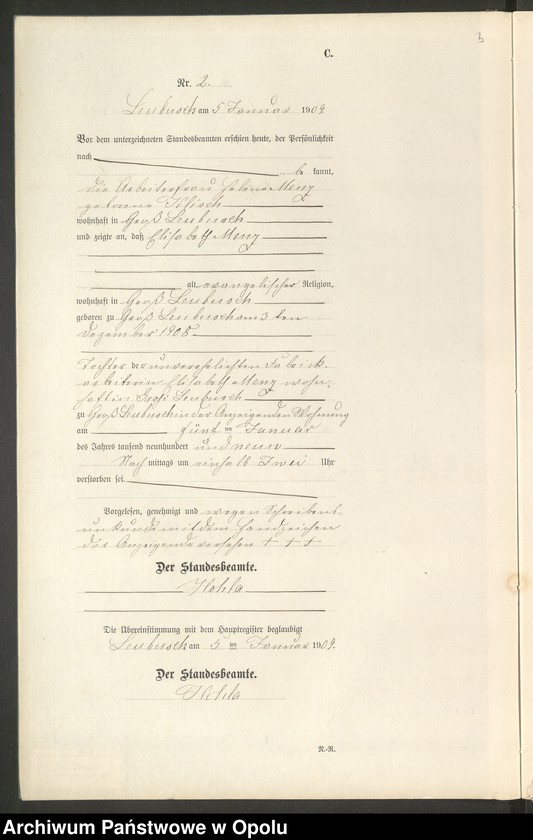 3
C.
Nr. 2
Leubusch am 5 Januar 1909.
Vor dem unterzeichneten Standesbeamten erschien heute, der Persönlichkeit
nach
be kannt,
die Arbeiterfrau Helene Menz
geborene Klisch
wohnhaft in Groß Leubusch
und zeigte an, daß Elisabeth Menz
alt, evangelischer Religion,
wohnhaft in Groß Leubusch
geboren zu Groß Leubusch am 3 ten
Dezember 1908
Tochter der unverehelichten Fabrik-
arbeiterin Elisabeth Menz wohn-
haft in Groß Leubusch
zu Groß Leubusch in der Anzeigenden Wohnung
am fünf ten Januar
des Jahres tausend neunhundert und neun
Nach mittags um einhalb Zwei Uhr
verstorben sei.
Vorgelesen, genehmigt und wegen Schreibens-
unkunde mit dem Handzeichen
der Anzeigende versehen + + +
Der Standesbeamte.
Die Übereinstimmung mit dem Hauptregister beglaubigt
Leubusch am 5 ten Januar 1909.
Der Standesbeamte.
N.-R.
Archiwum Państwowe w Opolu